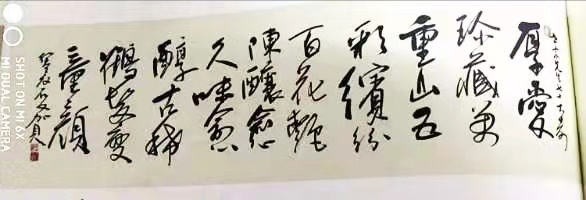 厚愛
珍藏萬
重山五
彩繽紛
百花艷
陳釀愈
久味愈
醇古稀
鶴髮變
童顏
SHOT ON MI 6X
MI DUAL CAMERA